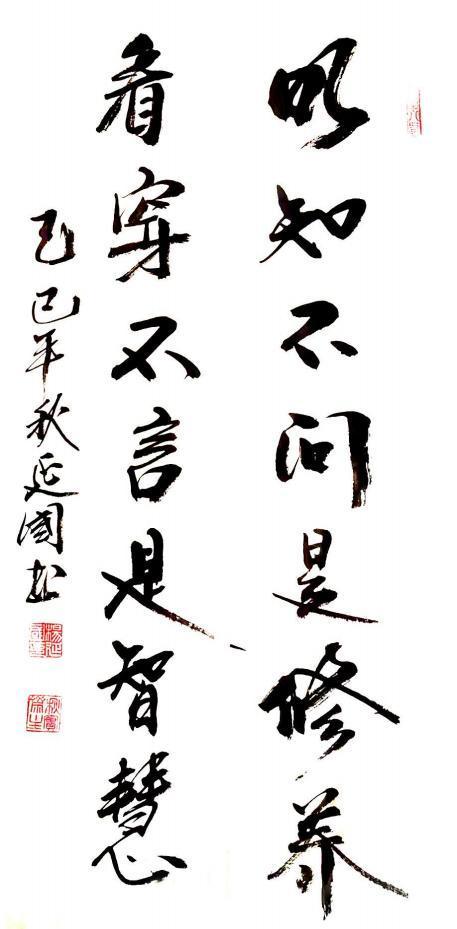 明知不问是修养
看穿不言是智慧
乙巳年秋延國书